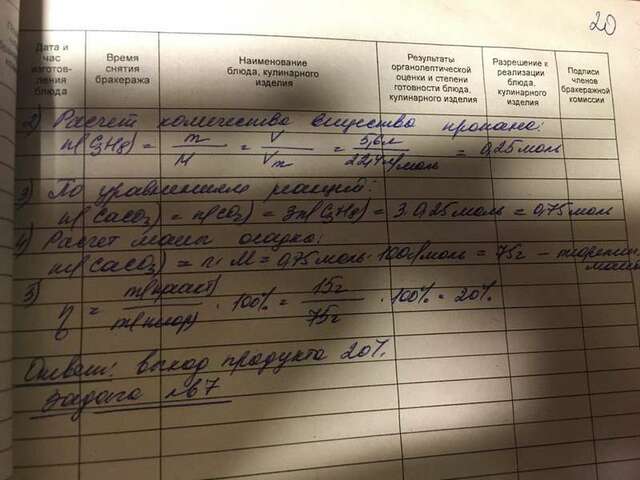 20
Дата и час изготов- ления блюда
Время снятия бракеража
Наименование блюда, кулинарного изделия
Результаты органолептической оценки и степени готовности блюда, кулинарного изделия
Разрешение к реализации блюда, кулинарного изделия
Подписи членов бракеражной комиссии
2) Расчет количества вещества пропана:
n(C3H8) = m/M = V/Vm = 5,6л/22,4л/моль = 0,25моль
3) По уравнениям реакций:
n(CaCO3) = n(CO2) = 3n(C3H8) = 3·0,25моль = 0,75моль
4) Расчет массы осадка:
m(CaCO3) = n·M = 0,75моль·100г/моль = 75г –
5) η = m(практ)/m(теор) · 100% = 15г/75г · 100% = 20%
Ответ: выход продукта 20%.
Задача №7